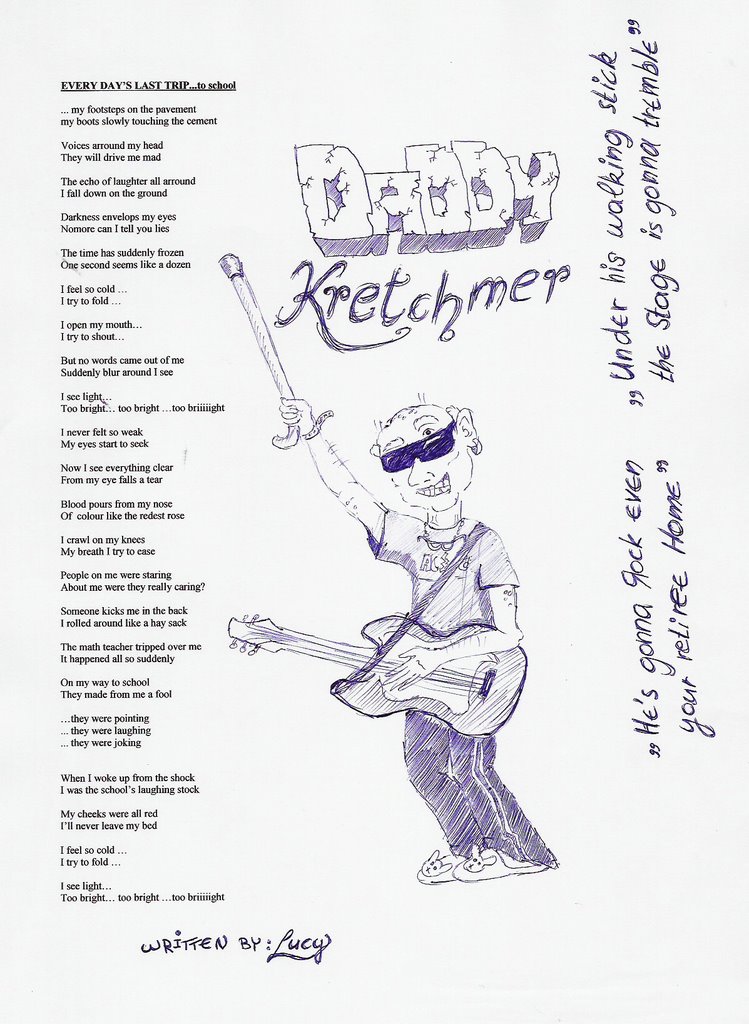 EVERY DAY'S LAST TRIP...to school
... my footsteps on the pavement
my boots slowly touching the cement
Voices arround my head
They will drive me mad
The echo of laughter all arround
I fall down on the ground
Darkness envelops my eyes
Nomore can I tell you lies
The time has suddenly frozen
One second seems like a dozen
I feel so cold …
I try to fold …
I open my mouth…
I try to shout…
But no words came out of me
Suddenly blur around I see
I see light…
Too bright… too bright …too briiiiight
I never felt so weak
My eyes start to seek
Now I see everything clear
From my eye falls a tear
Blood pours from my nose
Of colour like the redest rose
I crawl on my knees
My breath I try to ease
People on me were staring
About me were they really caring?
Someone kicks me in the back
I rolled around like a hay sack
The math teacher tripped over me
It happened all so suddenly
On my way to school
They made from me a fool
…they were pointing
... they were laughing
... they were joking
When I woke up from the shock
I was the school's laughing stock
My cheeks were all red
I'll never leave my bed
I feel so cold …
I try to fold …
I see light…
Too bright… too bright …too briiiiight
WRiTTEN BY: Lucy
DaDDY
Kretchmer
„Under his walking stick
the Stage is gonna tremble”
„He's gonna Rock even
your retiree Home”